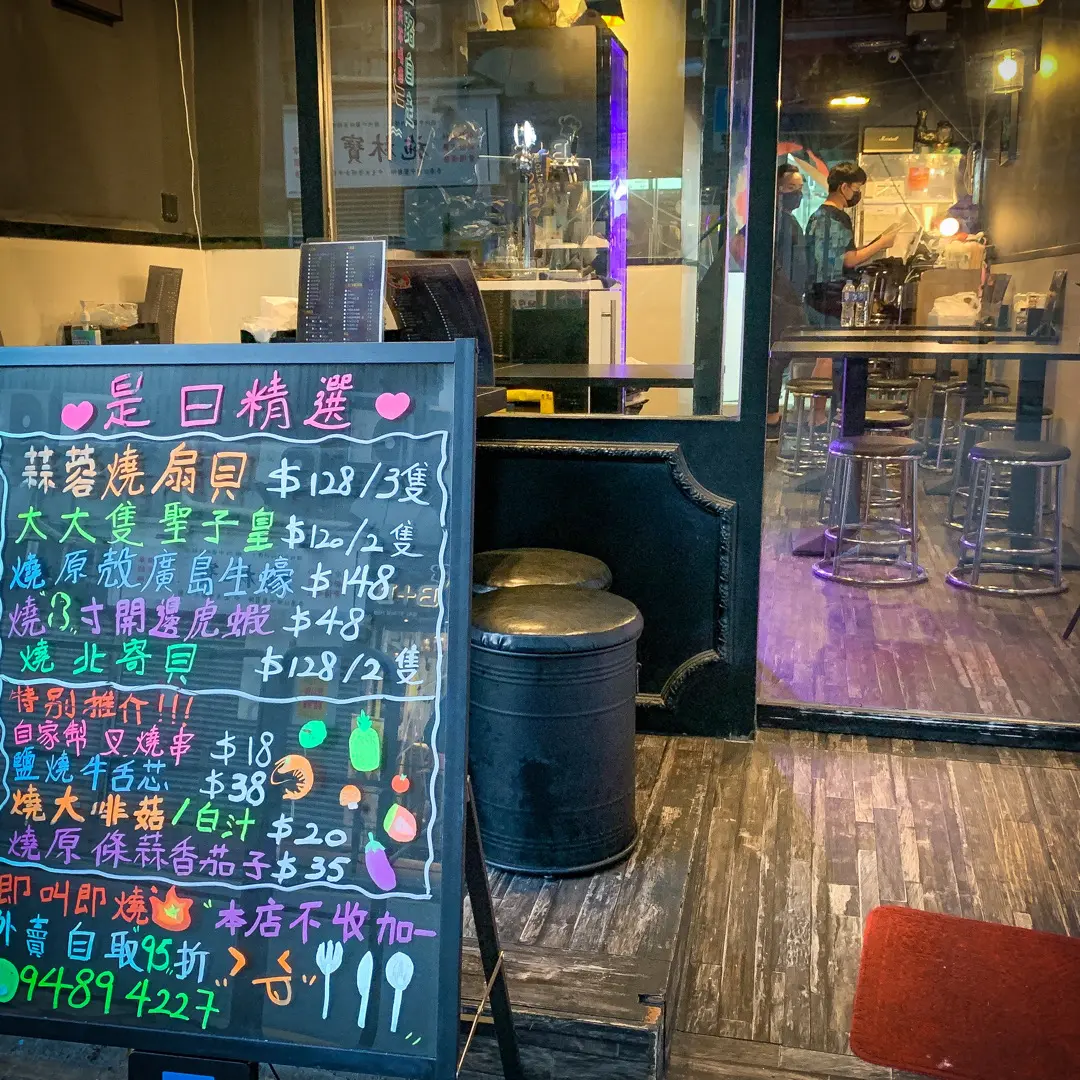 是日精選
蒜蓉燒扇貝 $128/3隻
大大隻聖子皇 $120/2隻
燒原殼廣島生蠔 $148
燒"13"寸開邊虎蝦 $48
燒北寄貝 $128/2隻
特別推介!!!
自家製叉燒串 $18
鹽燒牛舌芯 $38
燒大啡菇/白汁 $20
燒原條蒜香茄子 $35
即叫即燒 "本店不收加一"
外賣自取"95"折
94894227